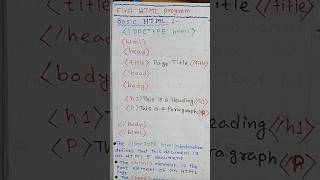 First HTML program
Basic HTML :-
<!DOCTYPE html>
<html>
<head>
<title> Page Title </title>
</head>
<body>
<h1> This is a Heading </h1>
<P> This is a Paragraph </P>
</body>
</html>
The <!DOCTYPE html> declaration
defines that this document is
an HTML 5 document
The <html> element is the
root element of an HTML
Page
The